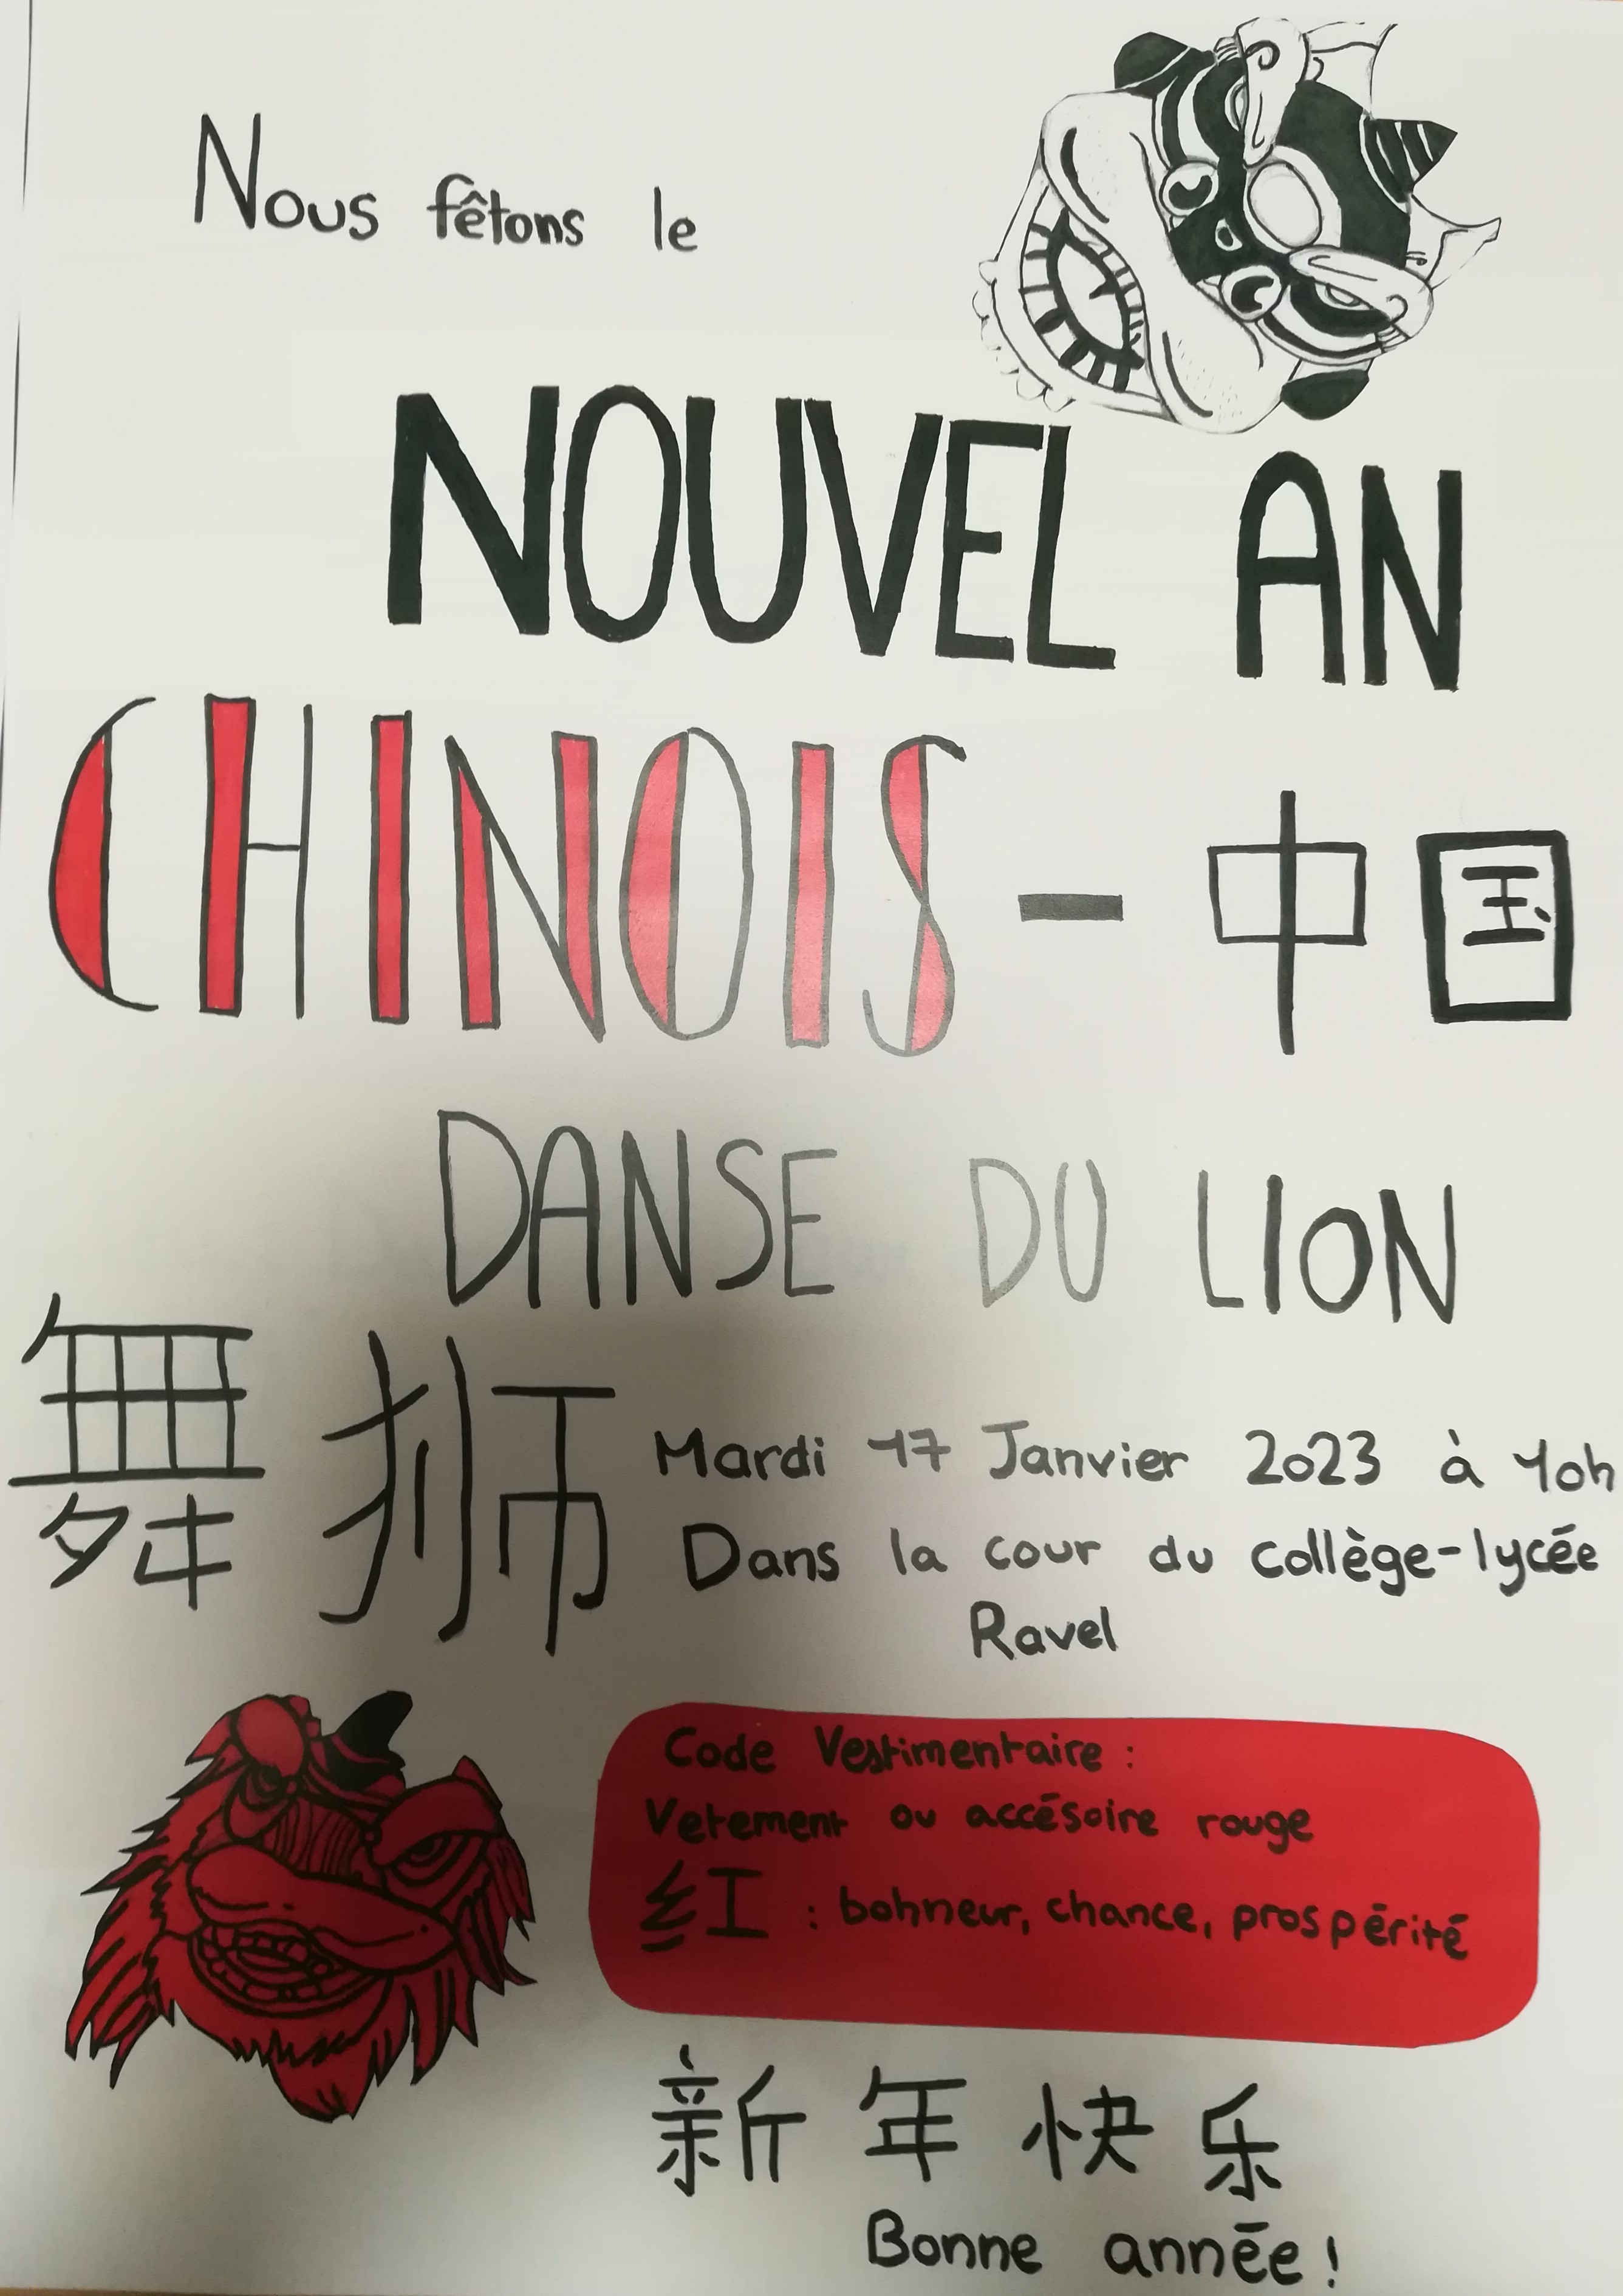 Nous fêtons le
NOUVEL AN
CHINOIS - 中国
DANSE DU LION
舞狮
Mardi 17 Janvier 2023 à 10h
Dans la cour du collège-lycée
Ravel
Code Vestimentaire :
Vetement ou accésoire rouge
红 : bohneur, chance, prospérité
新年快乐
Bonne année !